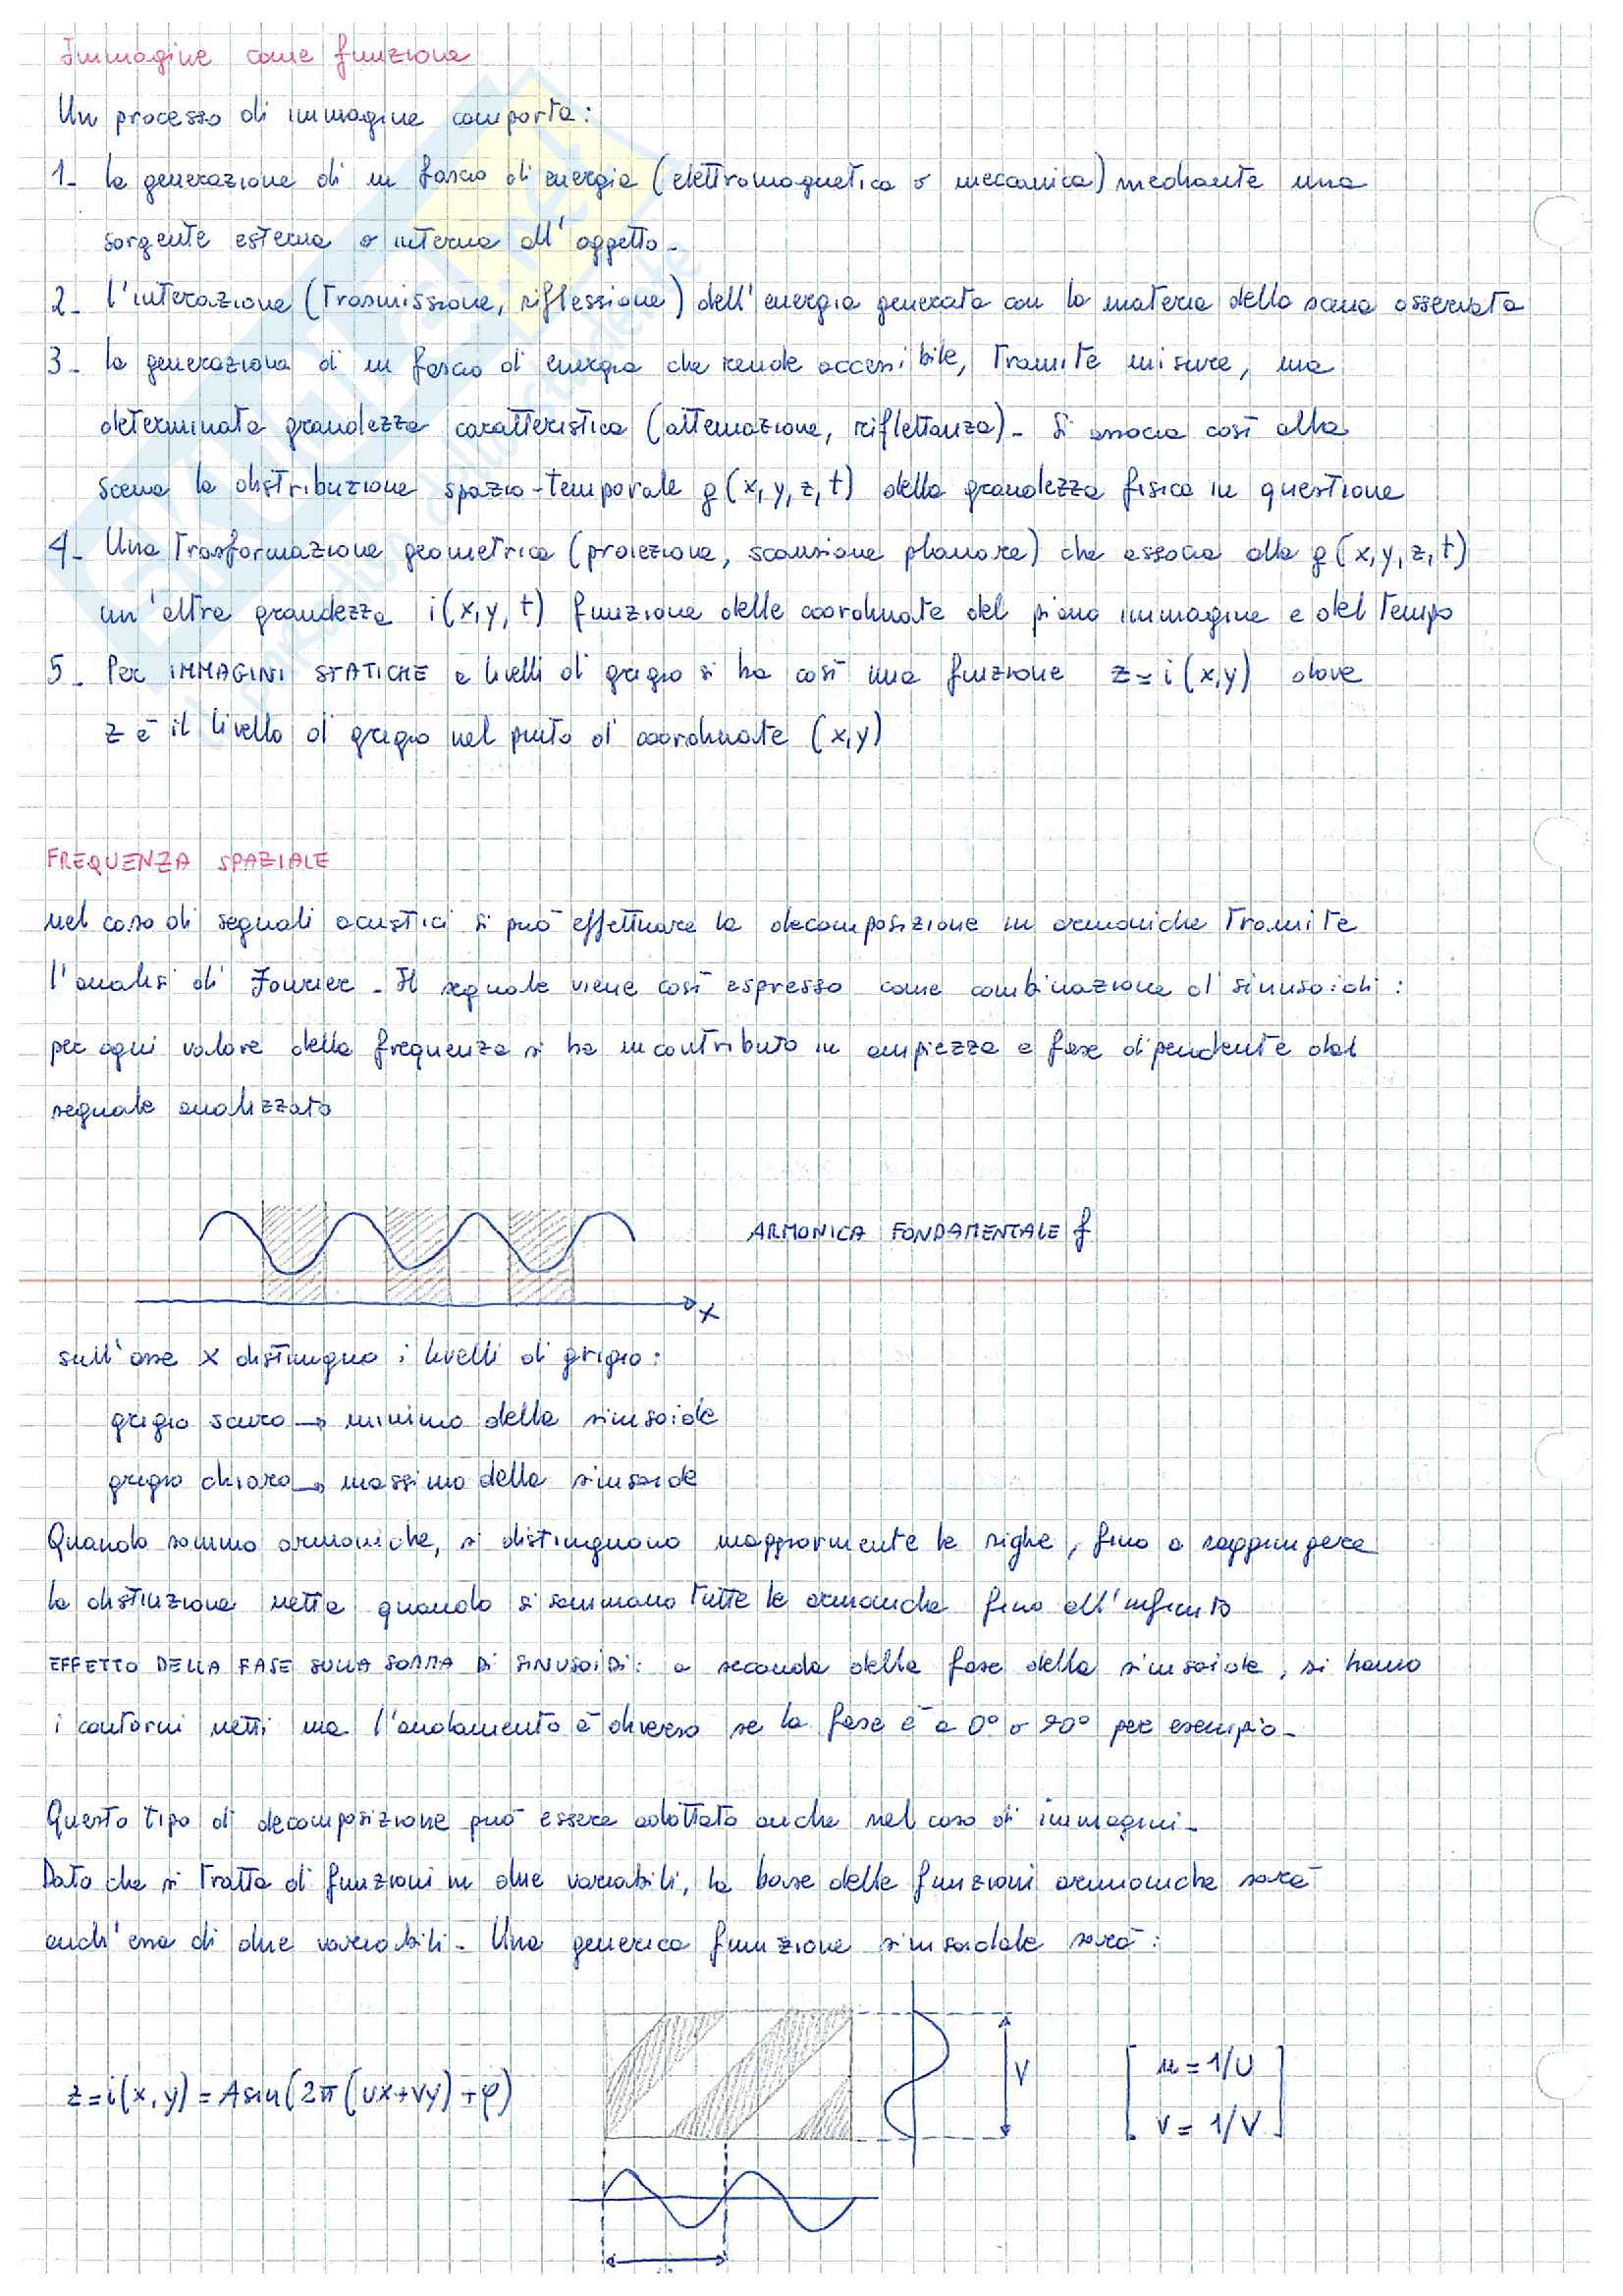 Immagine come funzione
Un processo di immagine comporta:
1- la generazione di un fascio di energia (elettromagnetica o meccanica) mediante una
sorgente esterna o interna all'oggetto-
2- l'interazione (trasmissione, riflessione) dell'energia generata con la materia della scena osservata
3- la generazione di un fascio di energia che rende accessibile, tramite misure, una
determinata grandezza caratteristica (attenuazione, riflettanza)- Si associa così alla
scena la distribuzione spazio-temporale g(x,y,z,t) della grandezza fisica in questione
4- Una trasformazione geometrica (proiezione, scansione planare) che associa alla g(x,y,z,t)
un'altra grandezza i(x,y,t) funzione delle coordinate del piano immagine e del tempo
5- Per IMMAGINI STATICHE a livelli di grigio si ha così una funzione z=i(x,y) dove
z è il livello di grigio nel punto di coordinate (x,y)
FREQUENZA SPAZIALE
nel caso di segnali acustici si può effettuare la decomposizione in armoniche tramite
l'analisi di Fourier- Il segnale viene così espresso come combinazione di sinusoidi:
per ogni valore della frequenza si ha un contributo in ampiezza e fase dipendente dal
segnale analizzato
ARMONICA FONDAMENTALE f
x
sull'asse x distinguo i livelli di grigio:
grigio scuro → minimo della sinusoide
grigio chiaro → massimo della sinusoide
Quando sommo armoniche, si distinguono maggiormente le righe, fino a raggiungere
la distinzione netta quando si sommano tutte le armoniche fino all'infinito
EFFETTO DELLA FASE SULLA SOMMA DI SINUSOIDI: a seconda della fase della sinusoide, si hanno
i contorni netti ma l'andamento è diverso se la fase è a 0° o 90° per esempio-
Questo tipo di decomposizione può essere adottata anche nel caso di immagini-
Dato che si tratta di funzioni in due variabili, la base delle funzioni armoniche sarà
anch'essa di due variabili- Una generica funzione sinusoidale sarà:
z=i(x,y)=Asin(2π(ux+vy)+φ)
V
u=1/U
v=1/V